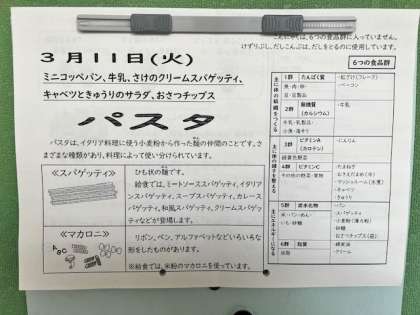 こんにゃくは、6つの食品群に入っていません。
けずりぶし、だしこんぶは、だしをとるのに使用しています。
3月11日(火)
ミニコッペパン、牛乳、さけのクリームスパゲッティ、
キャベツときゅうりのサラダ、おさつチップス
パスタ
パスタは、イタリア料理に使う小麦粉から作った麺の仲間のことです。さ
まざまな種類があり、料理によって使い分けられています。
≪スパゲッティ≫
ひも状の麺です。
給食では、ミートソーススパゲッティ、イタリア
ンスパゲッティ、スープスパゲッティ、カレース
パゲッティ、和風スパゲッティ、クリームスパゲ
ッティなどが登場します。
≪マカロニ≫
ABC
リボン、ペン、アルファベットなどいろいろな
形をしたものがあります。
※給食では、米粉のマカロニを使っています。
6つの食品群
主に体の組織をつくる
1群 たんぱく質
魚・肉・卵・
豆・豆製品
・鮭さけ(フレーク)
・ベーコン
2群 無機質
(カルシウム)
牛乳・乳製品・
小魚・海そう
・牛乳
主に体の調子を整える
3群 ビタミンA
(カロテン)
緑黄色野菜
・にんじん
4群 ビタミンC
その他の野菜・果物
・たまねぎ
・マッシュルーム(水煮)
・キャベツ
・きゅうり
主にエネルギーになる
5群 炭水化物
米・パン・めん・
いも・砂糖
・パン
・スパゲッティ
・小麦粉(薄力粉)
・砂糖
・おさつチップス(袋)
6群 脂質
油脂
・クリーム